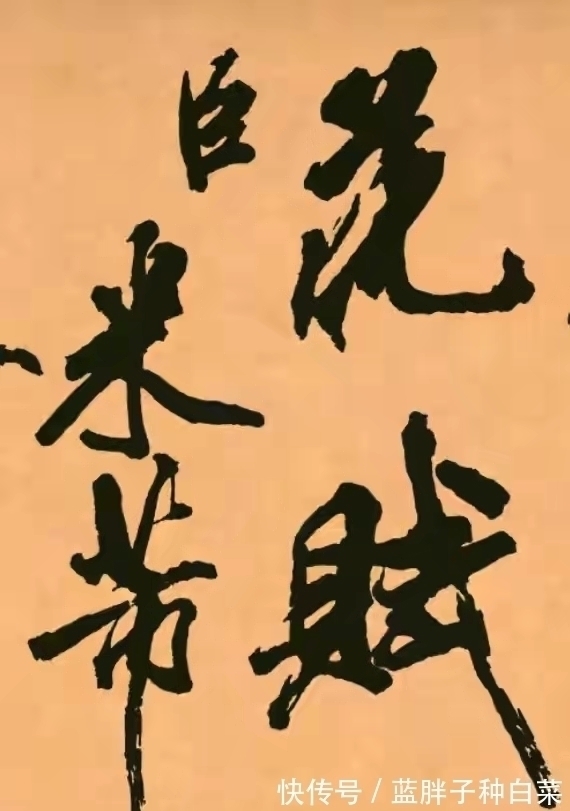 赋
臣米芾
快传号 / 蓝胖子种白菜